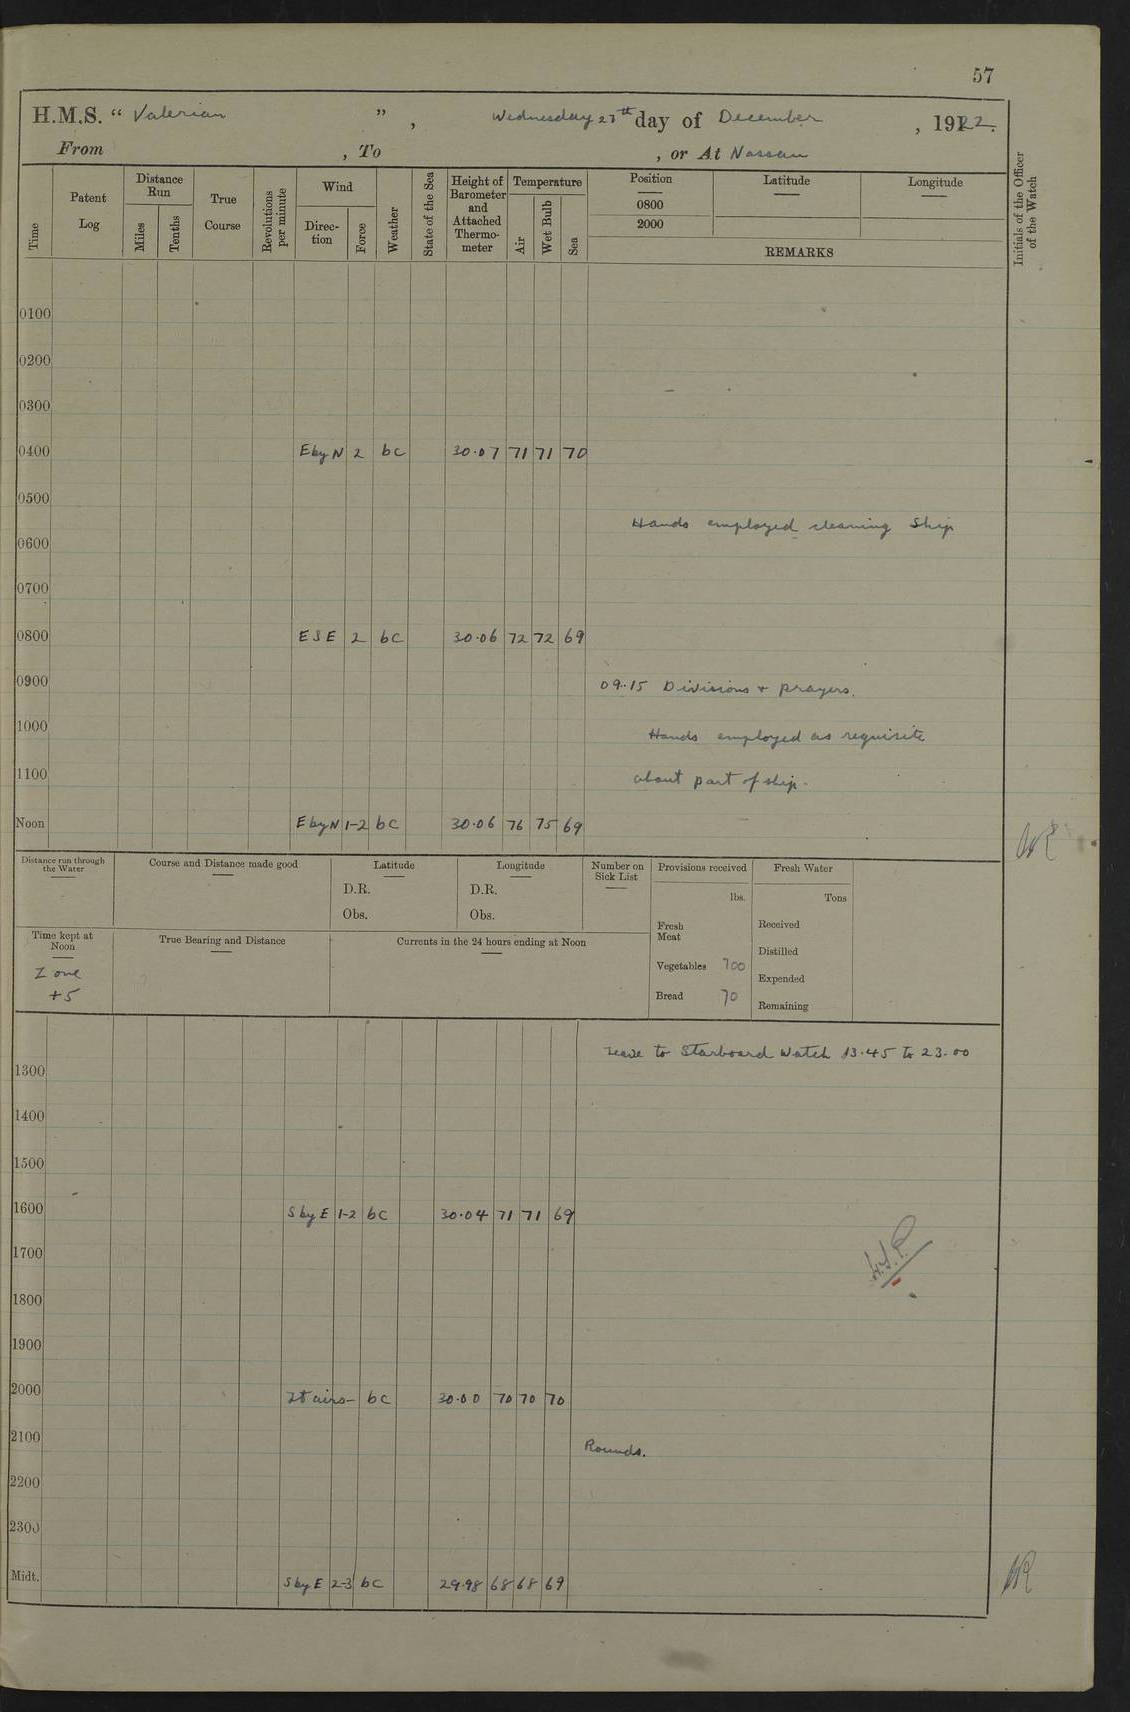 57
H.M.S. “ Valerian ” , Wednesday 27th day of December , 1922.
From , To , or At Nassau
Time
Patent Log
Distance Run
Miles
Tenths
True Course
Revolutions per minute
Wind
Direction
Force
Weather
State of the Sea
Height of Barometer and Attached Thermometer
Temperature
Air
Wet Bulb
Sea
Position
0800
2000
Latitude
Longitude
REMARKS
Initials of the Officer of the Watch
0100
0200
0300
0400 E by N 2 bc 30·07 71 71 70
0500
Hands employed cleaning Ship
0600
0700
0800 ESE 2 bc 30·06 72 72 69
0900 09·15 Divisions + prayers.
1000 Hands employed as requisite
1100 about part of ship.
Noon E by N 1-2 bc 30·06 76 75 69
Distance run through the Water
Course and Distance made good
Latitude
D.R.
Obs.
Longitude
D.R.
Obs.
Number on Sick List
Provisions received
lbs.
Fresh Meat
Vegetables 700
Bread 70
Fresh Water
Tons
Received
Distilled
Expended
Remaining
Time kept at Noon
Zone
+5
True Bearing and Distance
Currents in the 24 hours ending at Noon
Leave to Starboard Watch 13·45 to 23·00
1300
1400
1500
1600 S by E 1-2 bc 30·04 71 71 69
1700
1800
1900
2000 Lt airs - bc 30·00 70 70 70
2100 Rounds.
2200
2300
Midt. S by E 2-3 bc 29·98 68 68 69